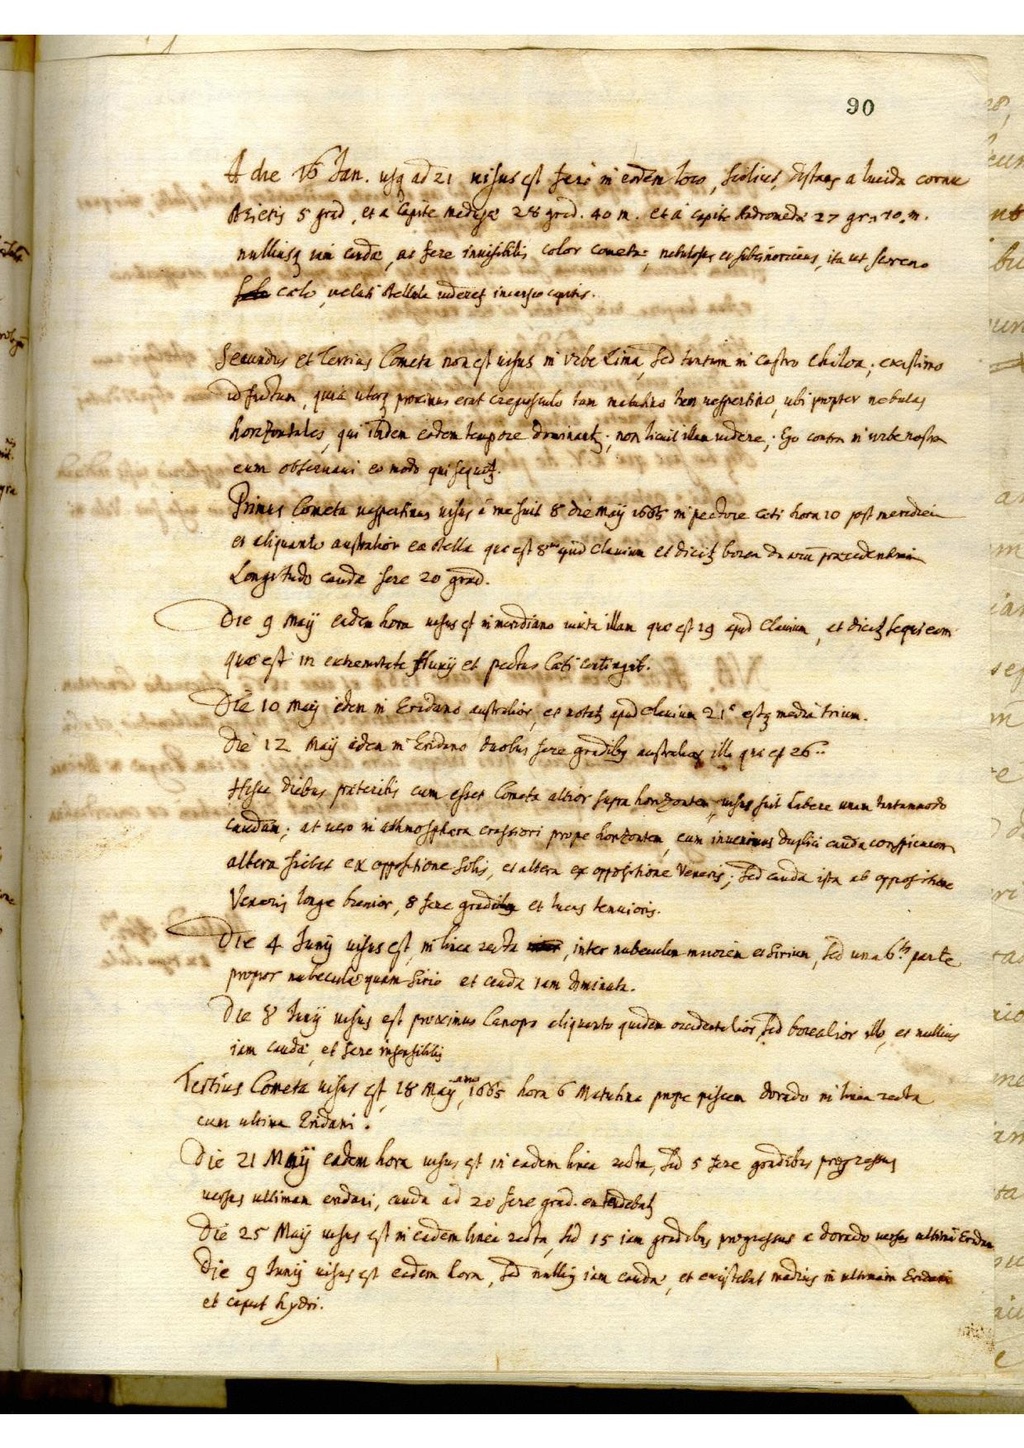 90
A die 16 Jan. usq ad 21 uisus est fere in eodem loco, scilicet, distans a lucida cornu
Arietis 5 grad, et a Capite medusæ 28 grad. 40 m. et a capite Andromedæ 27 gr. 10. m.
nulliusq iam caudæ, ac fere inuisibilis color cometæ, nebulosus et ita ut sereno
celo, veluti stellula uideret capitis.
Secundus et Tertius Cometa non est uisus in Vrbe Lima, sed tantum in castro Chiloa; existimo
id factum, quia uterq proximus erat crepusculo tam matutino uespertino, ubi propter nebulas
horizontales, qui ibidem eodem tempore dominant; non licuit illam uidere; Ego contra in urbe nostra
eum obseruaui eo modo qui sequet.
Primus Cometa uespertinus uisus a me fuit 8 die Maij 1665 in pectore ceti hora 10 post meridiem
et aliquanto australior ea stella quæ est 8 apud Clauium et dicit præcedentium
Longitudo caudæ fere 20 grad.
Die 9 Maij eadem hora uisus est in meridiano iuxta illam quæ est 19 apud Clauium, et dicit sequi eam
quæ est in extremitate fluuij et pectus Ceti contingit.
Die 10 Maij in Eridano australior, et notat apud Clauium 21ª estq media trium.
Die 12 Maij in Eridano duobus fere gradibus australior illa quæ est 26
Hisce diebus præteritis cum esset Cometa altior supra horizontem, uisus fuit habere unam tantummodo
caudam; at uero in athmosphæra crassiori prope horizontem, eum inuenimus duplici cauda conspicuum
altera scilicet ex oppositione Solis, et altera ex oppositione Veneris; sed cauda ista ab oppositione
Veneris longe breuior, 8 fere gradibus et lucis tenuioris.
Die 4 Junij uisus est, in linea recta, inter nubeculam maiorem et Sirium, sed una 6 parte
propior nubeculæ quam Sirio et cauda iam diminuta.
Die 8 Junij uisus est proximus Canopo aliquanto quidem occidentalior, sed borealior illo, et nullius
iam caudæ, et fere insensibilis
Tertius Cometa uisus est, 18 Maij, anno 1665 hora 6 Matutina prope piscem dorado in linea recta
cum ultima Eridani.
Die 21 Maij eadem hora uisus est in eadem linea recta, sed 5 fere gradibus progressus
uersus ultimam eridani, cauda ad 20 fere grad. extendebat
Die 25 Maij uisus est in eadem linea recta, sed 15 iam gradibus progressus a dorado uersus ultimã Eridan
Die 9 Junij uisus est eadem hora, sed nulliq iam caudæ, et existebat medius in ultimam Eridani
et caput hydri.